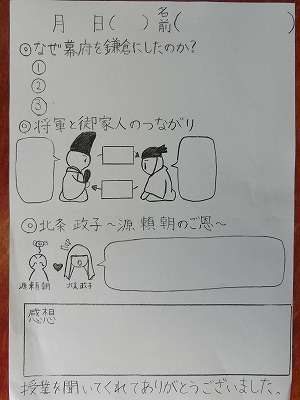 月 日( ) 名前( )
◎なぜ幕府を鎌倉にしたのか?
①
②
③
◎将軍と御家人のつながり
◎北条 政子 ～源 頼朝のご恩～
源頼朝 北条政子
感想
授業を聞いてくれてありがとうございました。